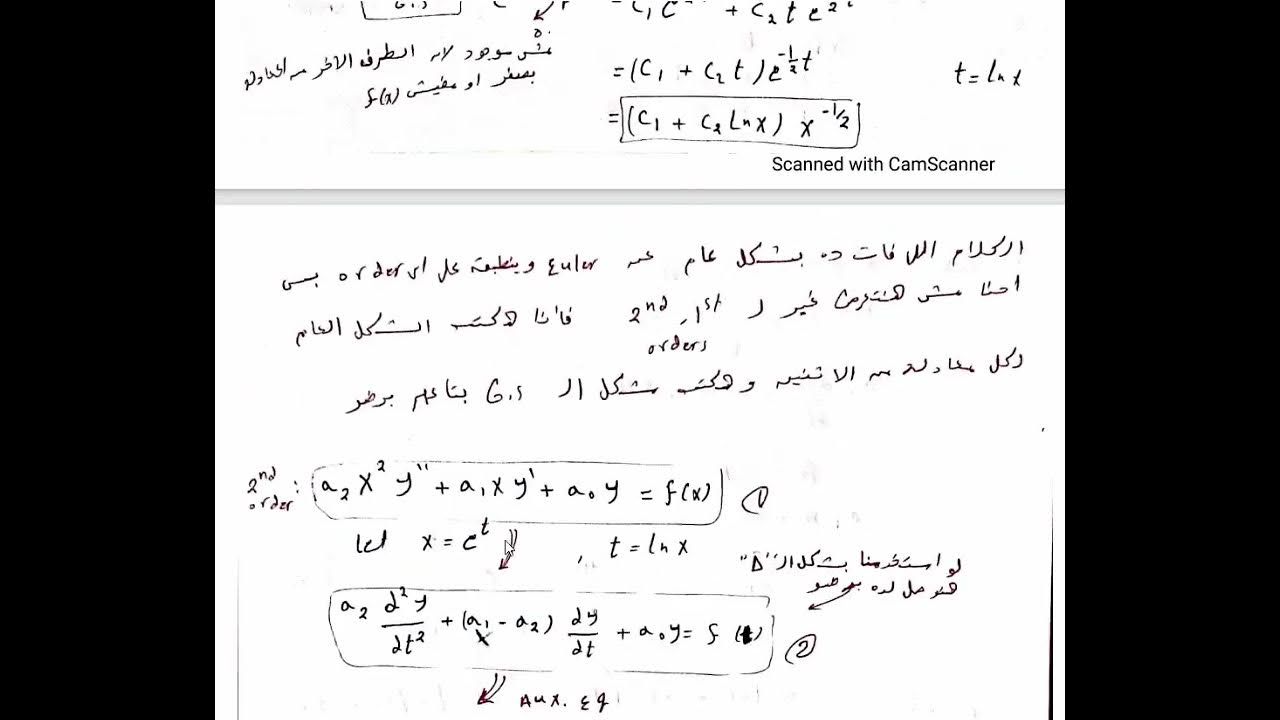 G.S
= C₁ e + C₂ t e
مش موجود لان الطرف الاخر من المعادلة
بصفر او مفيش f(x)
= (C₁ + C₂ t) e^{-1/2 t}
t = ln x
= (C₁ + C₂ ln x) x^{-1/2}
Scanned with CamScanner
الكلام اللي فات ده بشكل عام عن Euler وينطبق على اي order بس
احنا مش هنتعرض غير لـ 1st, 2nd orders فأنا هكتب الشكل العام
لكل معادلة من الاتنين وهكتب شكل الـ G.S بتاعهم برضو
2nd order: a₂ x² y'' + a₁ x y' + a₀ y = f(x) ①
let x = e^t , t = ln x
لو استخدمنا بشكل الـ "D"
هنوصل لده برضو
a₂ d²y/dt² + (a₁ - a₂) dy/dt + a₀ y = f(t) ②
Aux. eq